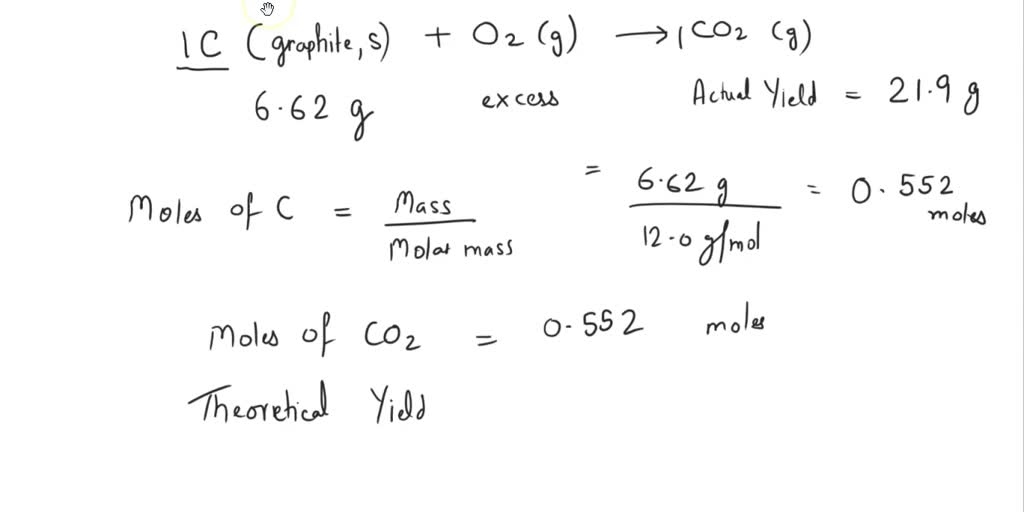 1C (graphite, s) + O2 (g) → 1CO2 (g)
6.62 g excess Actual Yield = 21.9 g
Moles of C = Mass / Molar mass = 6.62 g / 12.0 g/mol = 0.552 moles
Moles of CO2 = 0.552 moles
Theoretical Yield